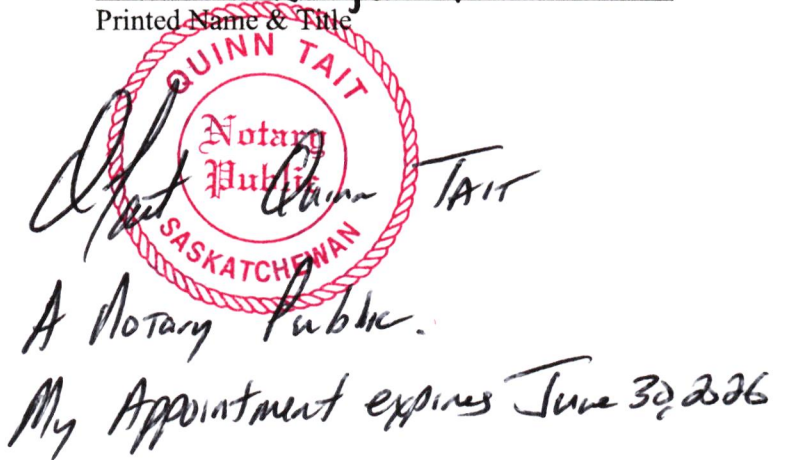 Printed Name & Title
QUINN TAIT
Notary
Public
SASKATCHEWAN
QTait Quinn TAIT
A Notary Public.
My Appointment expires June 30, 2026